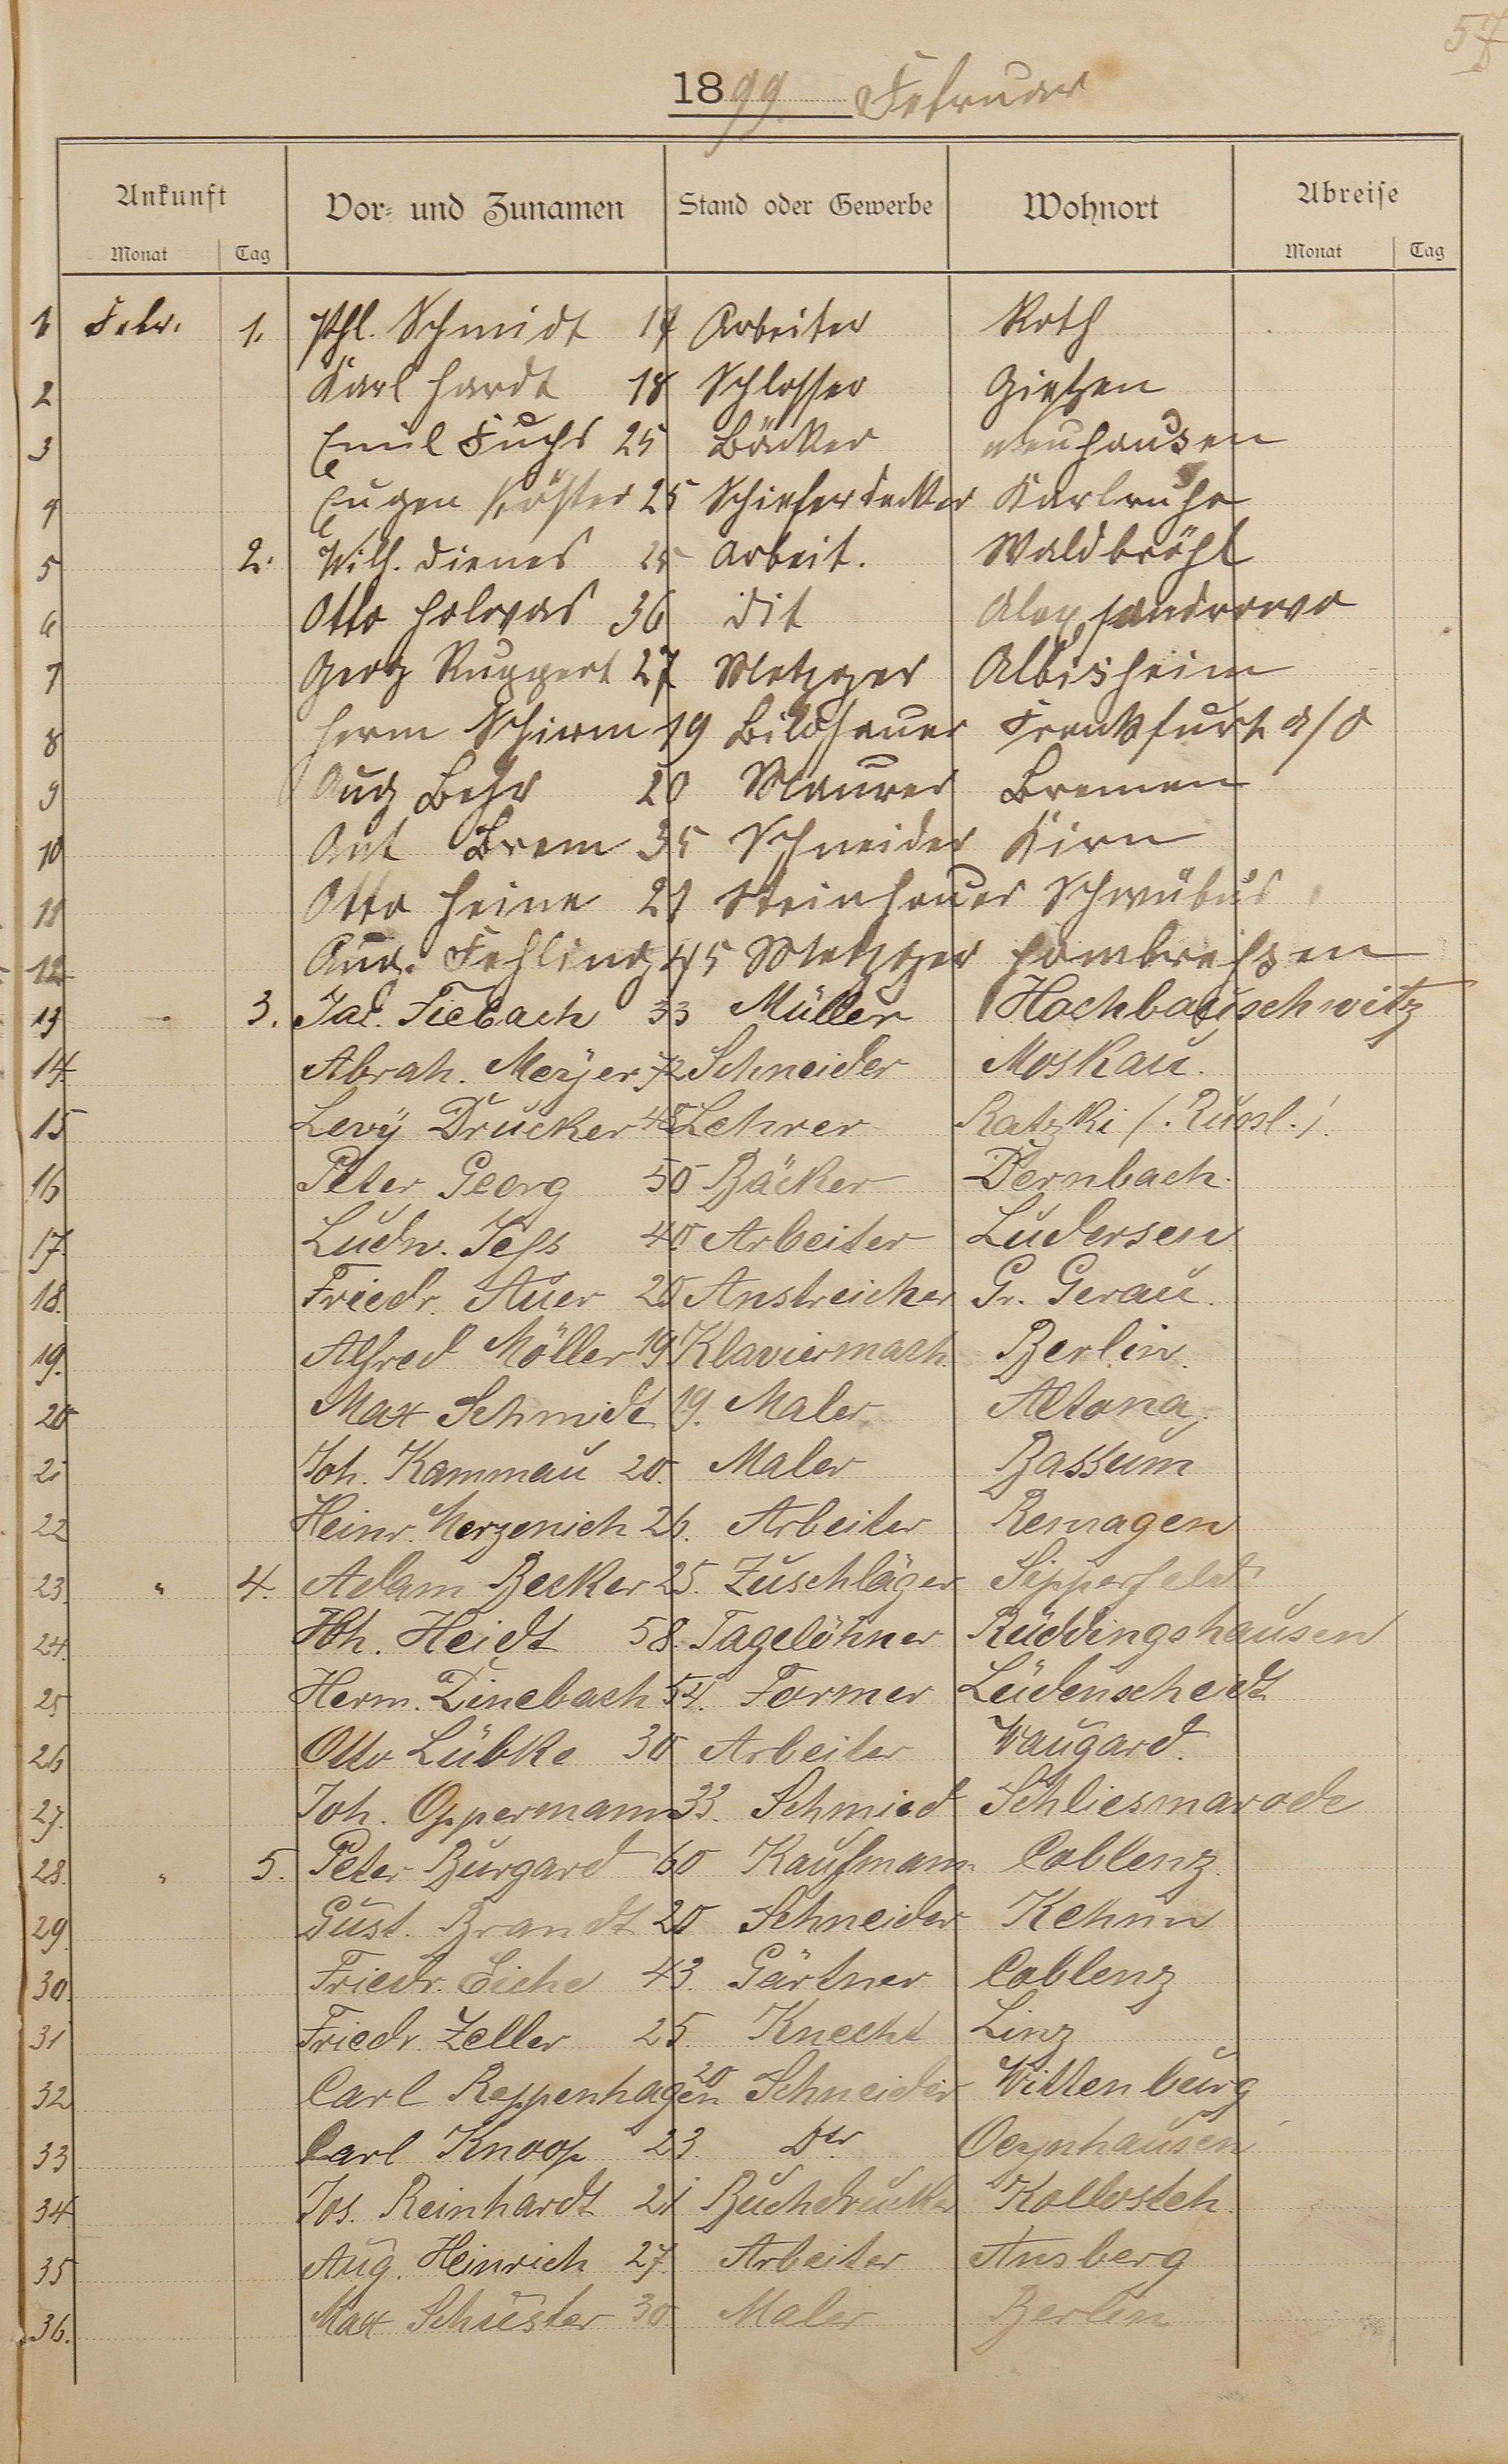 57
1899. Februar
Ankunft Vor- und Zunamen Stand oder Gewerbe Wohnort Abreise
Monat Tag Monat Tag
1 Febr. 1. Phl. Schmidt 17 Arbeiter Roth
2 Karl Hardt 18 Schlosser Gießen
3 Emil Fuchs 25 Bäcker Neuhausen
4 Eugen Köster 25 Schieferdecker Karlsruhe
5 2. Wilh. Dienes 25 Arbeit. Waldbröhl
6 Otto Holvas 36 dit Alexsandrowo
7 Georg Ruppert 27 Metzger Albisheim
8 Herm Schirm 19 Bildhauer Frankfurt a/O
9 Aug Behr 20 Maurer Bremen
10 Ant Brem 35 Schneider Kirn
11 Otto Heine 21 Steinhauer Schwübus
12 Aug. Fehling 45 Metzger Hombressen
13 3. Jak. Fiebach 33 Müller Hochbauschwitz
14 Abrah. Meyer 72 Schneider Moskau.
15 Levy Drucker 48 Lehrer Ratzki (. Russl.).
16 Peter Georg 50 Bäcker Dernbach.
17. Ludw. Jess 40 Arbeiter Ludersen
18. Friedr. Auer 20 Anstreicher Gr. Gerau.
19. Alfred Möller 19 Klaviermach. Berlin.
20 Max Schmidt 19. Maler Altona,
21 Joh. Kammau 20. Maler Bassum
22 Heinr. Merzenich 26. Arbeiter Remagen
23 " 4. Adam Becker 25. Zuschläger Sipperfeld
24. Joh. Heidt 58. Tagelöhner Rüddingshausen
25 Herm. Dinebach 54. Former Lüdenscheidt
26 Otto Lübke 30 Arbeiter Naugard.
27. Joh. Oppermann 33. Schmied Schliesmarode
28. " 5. Peter Burgard 60 Kaufmann Coblenz.
29. Gust. Brandt 20 Schneider Kehnn
30. Friedr. Eiche 43. Gärtner Coblenz
31 Friedr. Zeller 25. Knecht Linz
32 Carl Reppenhagen 20 Schneider Wittenburg
33 Carl Knoop 23. Dto Oeynhausen
34. Jos. Reinhardt 21 Buchdrucker Kollosteh.
35 Aug. Heinrich 27. Arbeiter Ansberg
36. Max Schuster 30 Maler Berlin